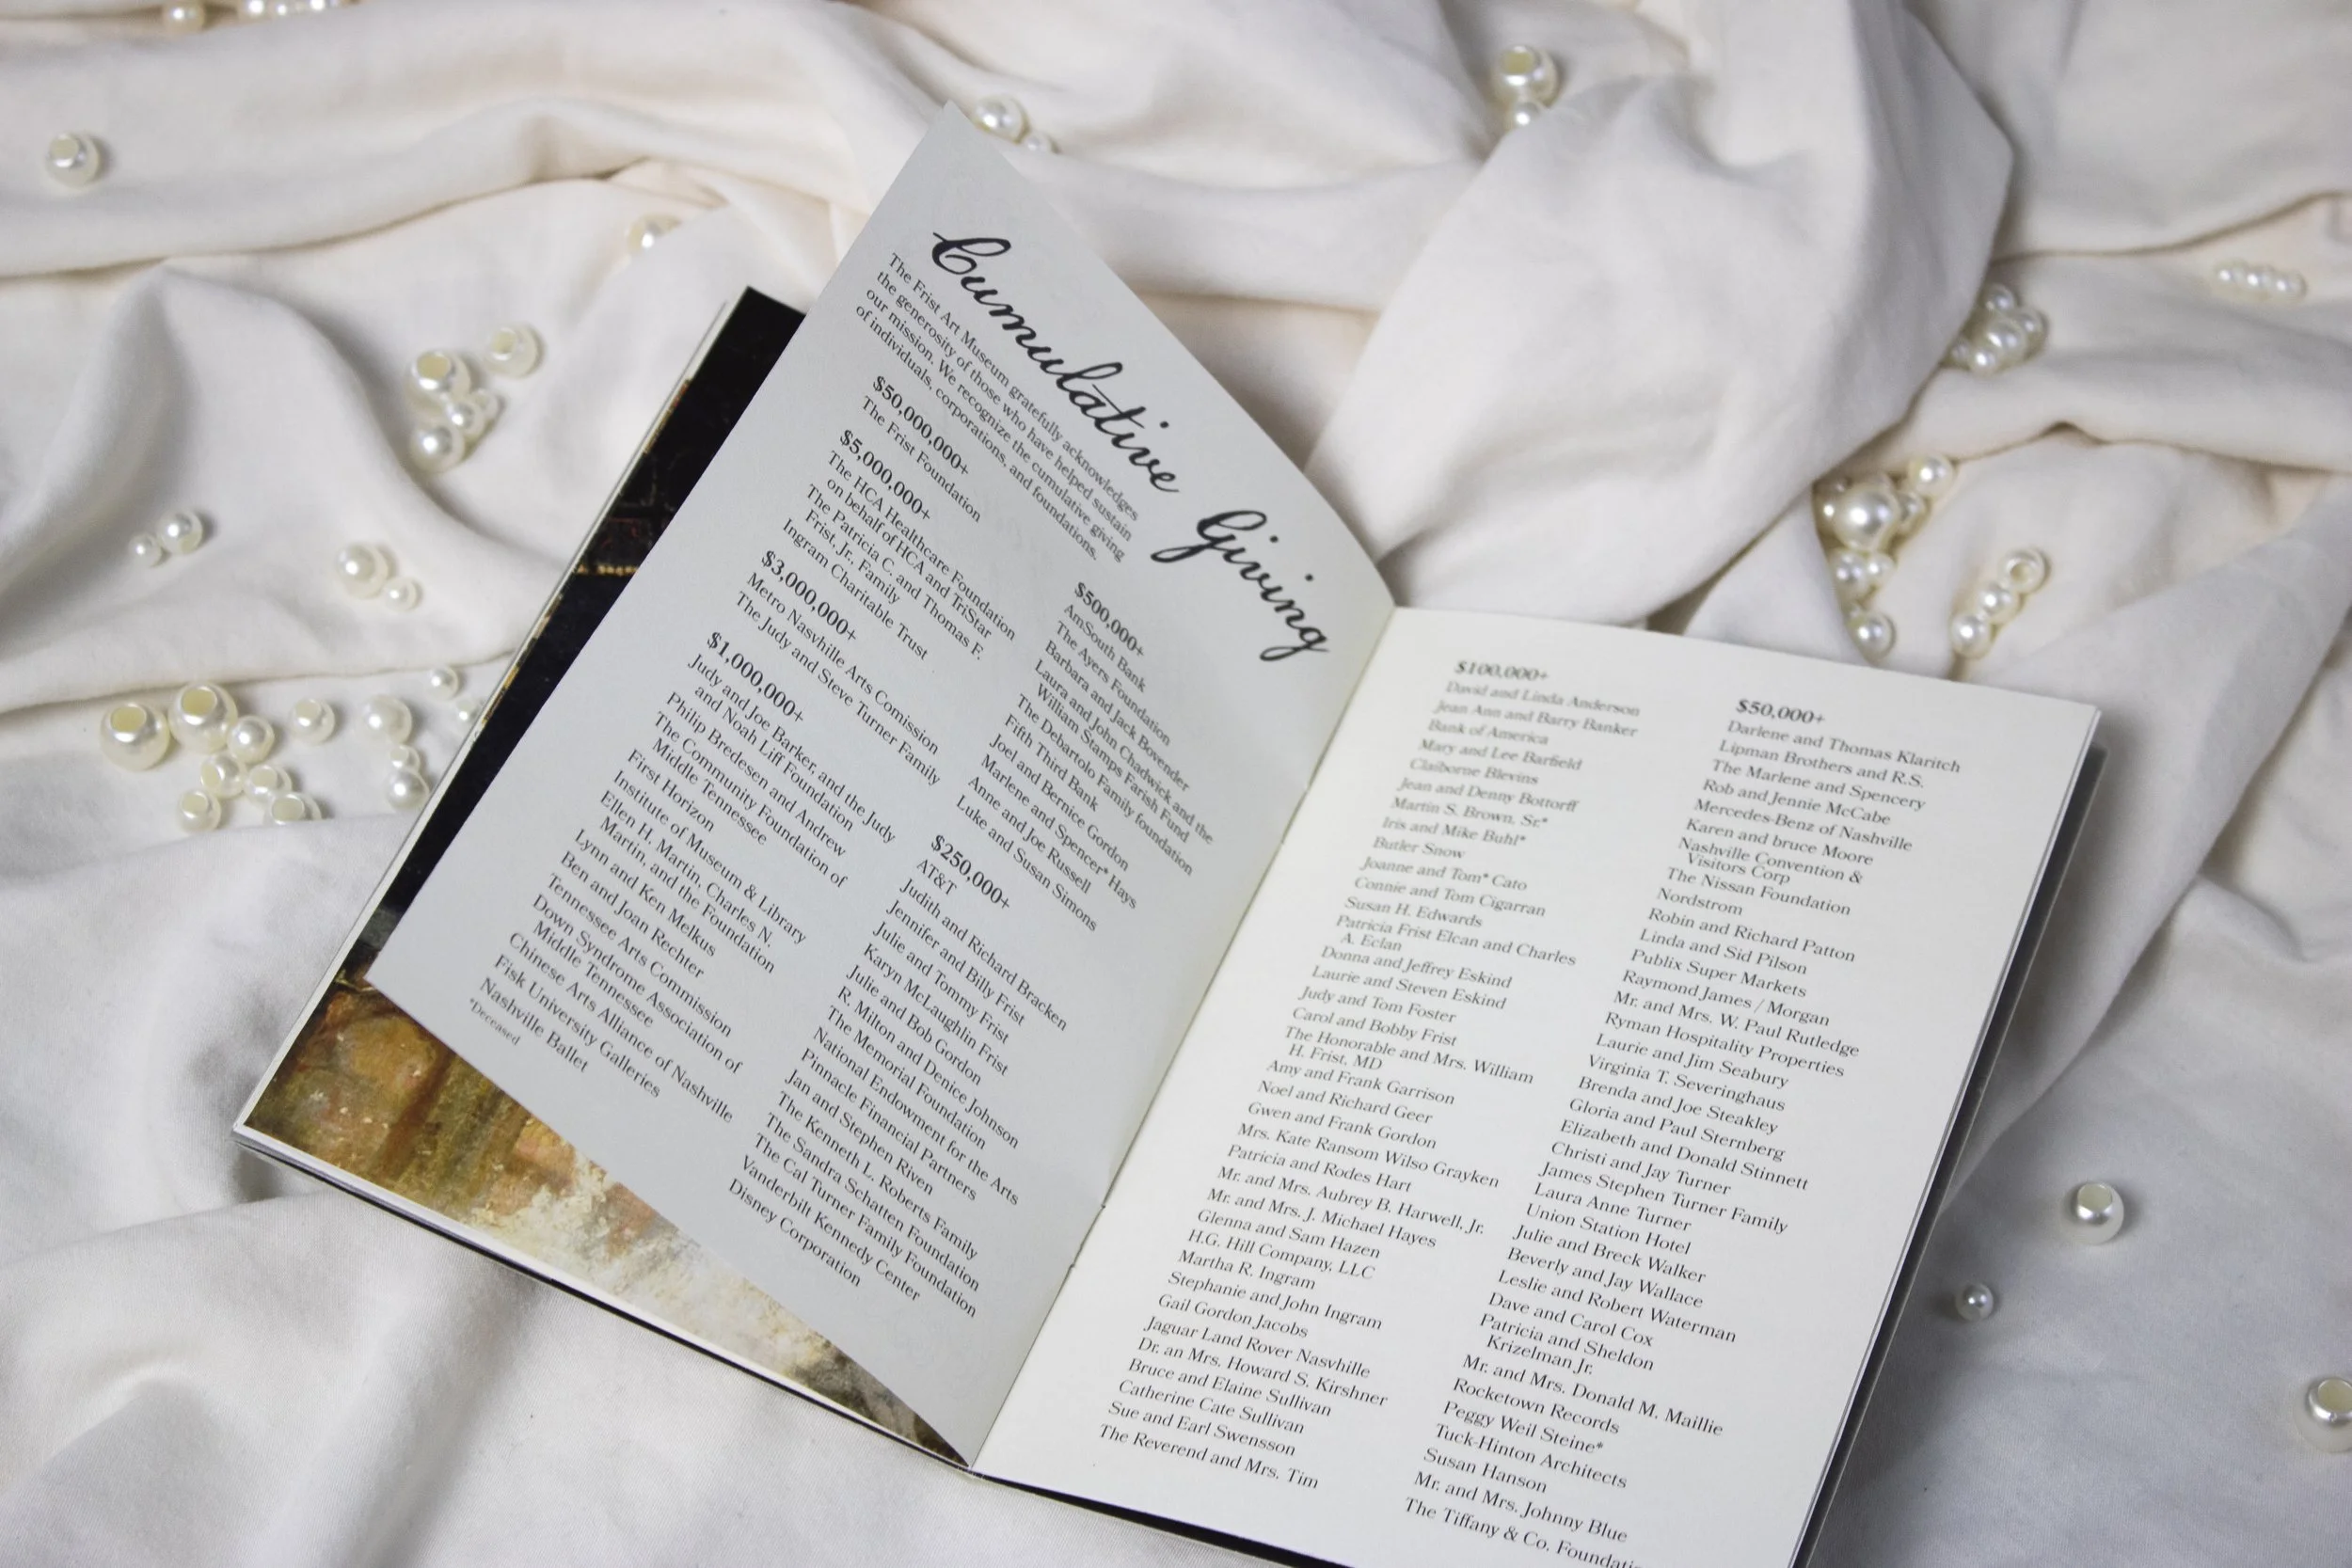 Cumulative Giving
The Frist Art Museum gratefully acknowledges
the generosity of those who have helped sustain
our mission. We recognize the cumulative giving
of individuals, corporations, and foundations.
$50,000,000+
The Frist Foundation
$5,000,000+
The HCA Healthcare Foundation
on behalf of HCA and TriStar
The Patricia C. and Thomas F.
Frist, Jr., Family
Ingram Charitable Trust
$3,000,000+
Metro Nasvhille Arts Comission
The Judy and Steve Turner Family
$1,000,000+
Judy and Joe Barker, and the Judy
and Noah Liff Foundation
Philip Bredesen and Andrew
The Community Foundation of
Middle Tennessee
First Horizon
Institute of Museum & Library
Ellen H. Martin, Charles N.
Martin, and the Foundation
Lynn and Ken Melkus
Ben and Joan Rechter
Tennessee Arts Commission
Down Syndrome Association of
Middle Tennessee
Chinese Arts Alliance of Nashville
Fisk University Galleries
Nashville Ballet
*Deceased
$500,000+
AmSouth Bank
The Ayers Foundation
Barbara and Jack Bovender
Laura and John Chadwick and the
William Stamps Farish Fund
The Debartolo Family foundation
Fifth Third Bank
Joel and Bernice Gordon
Marlene and Spencer* Hays
Anne and Joe Russell
Luke and Susan Simons
$250,000+
AT&T
Judith and Richard Bracken
Jennifer and Billy Frist
Julie and Tommy Frist
Karyn McLaughlin Frist
Julie and Bob Gordon
R. Milton and Denice Johnson
The Memorial Foundation
National Endowment for the Arts
Pinnacle Financial Partners
Jan and Stephen Riven
The Kenneth L. Roberts Family
The Sandra Schatten Foundation
The Cal Turner Family Foundation
Vanderbilt Kennedy Center
Disney Corporation
$100,000+
David and Linda Anderson
Jean Ann and Barry Banker
Bank of America
Mary and Lee Barfield
Claiborne Blevins
Jean and Denny Bottorff
Martin S. Brown, Sr.*
Iris and Mike Buhl*
Butler Snow
Joanne and Tom* Cato
Connie and Tom Cigarran
Susan H. Edwards
Patricia Frist Elcan and Charles
A. Eclan
Donna and Jeffrey Eskind
Laurie and Steven Eskind
Judy and Tom Foster
Carol and Bobby Frist
The Honorable and Mrs. William
H. Frist, MD
Amy and Frank Garrison
Noel and Richard Geer
Gwen and Frank Gordon
Mrs. Kate Ransom Wilso Grayken
Patricia and Rodes Hart
Mr. and Mrs. Aubrey B. Harwell, Jr.
Mr. and Mrs. J. Michael Hayes
Glenna and Sam Hazen
H.G. Hill Company, LLC
Martha R. Ingram
Stephanie and John Ingram
Gail Gordon Jacobs
Jaguar Land Rover Nasvhille
Dr. an Mrs. Howard S. Kirshner
Bruce and Elaine Sullivan
Catherine Cate Sullivan
Sue and Earl Swensson
The Reverend and Mrs. Tim
$50,000+
Darlene and Thomas Klaritch
Lipman Brothers and R.S.
The Marlene and Spencery
Rob and Jennie McCabe
Mercedes-Benz of Nashville
Karen and bruce Moore
Nashville Convention &
Visitors Corp
The Nissan Foundation
Nordstrom
Robin and Richard Patton
Linda and Sid Pilson
Publix Super Markets
Raymond James / Morgan
Mr. and Mrs. W. Paul Rutledge
Ryman Hospitality Properties
Laurie and Jim Seabury
Virginia T. Severinghaus
Brenda and Joe Steakley
Gloria and Paul Sternberg
Elizabeth and Donald Stinnett
Christi and Jay Turner
James Stephen Turner Family
Laura Anne Turner
Union Station Hotel
Julie and Breck Walker
Beverly and Jay Wallace
Leslie and Robert Waterman
Dave and Carol Cox
Patricia and Sheldon
Krizelman Jr.
Mr. and Mrs. Donald M. Maillie
Rocketown Records
Peggy Weil Steine*
Tuck-Hinton Architects
Susan Hanson
Mr. and Mrs. Johnny Blue
The Tiffany & Co. Foundatio